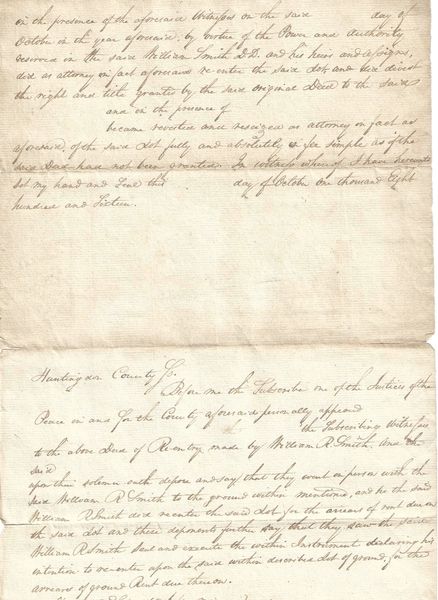 in the presence of the aforesaid Witnesses on the said day of
October in the year aforesaid, by virtue of the Power and Authority
reserved in the said William Smith D.D. and his heirs and assigns,
did as attorney in fact aforesaid re enter the said Lot, and did divest
the right and title granted by the said original Deed to the said
and in the presence of
became revested and reseized as attorney in fact as
aforesaid, of the said Lot fully and absolutely in fee simple as if the
said Deed had not been granted. In witness whereof I have hereunto
Set my hand and Seal this day of October one thousand Eight
hundred and Sixteen.
Huntingdon County Ss.
Before me the Subscriber one of the Justices of the
Peace in and for the County aforesaid personally appeared
the Subscribing Witnesses
to the above Deed of Reentry made by William R. Smith, and
said
upon their solemn oath depose and say that they went in person with the
said William R Smith to the ground within mentioned, and he the said
William R Smith did re enter the said Lot for the arrears of rent due on
the said Lot and these deponents further say that they saw the said
William R Smith Seal and execute the within Instrument declaring his
intention to re enter upon the said within described Lot of ground, for the
arrears of ground Rent due thereon.